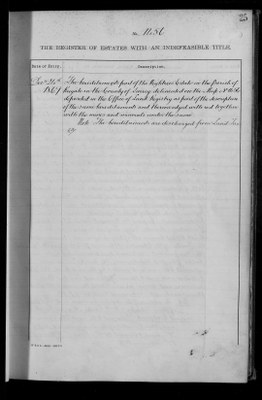 No. 1256
THE REGISTER OF ESTATES WITH AN INDEFEASIBLE TITLE.
Date of Entry.
Description.
1867
The hereditaments part of the Estate in the Parish of
Reigate in the County of Surrey delineated on the Map No.
deposited in the Office of Land Registry as part of the description
of the same hereditaments and therein edged with red together
with the mines and minerals under the same
Note The hereditaments are discharged from Land Tax